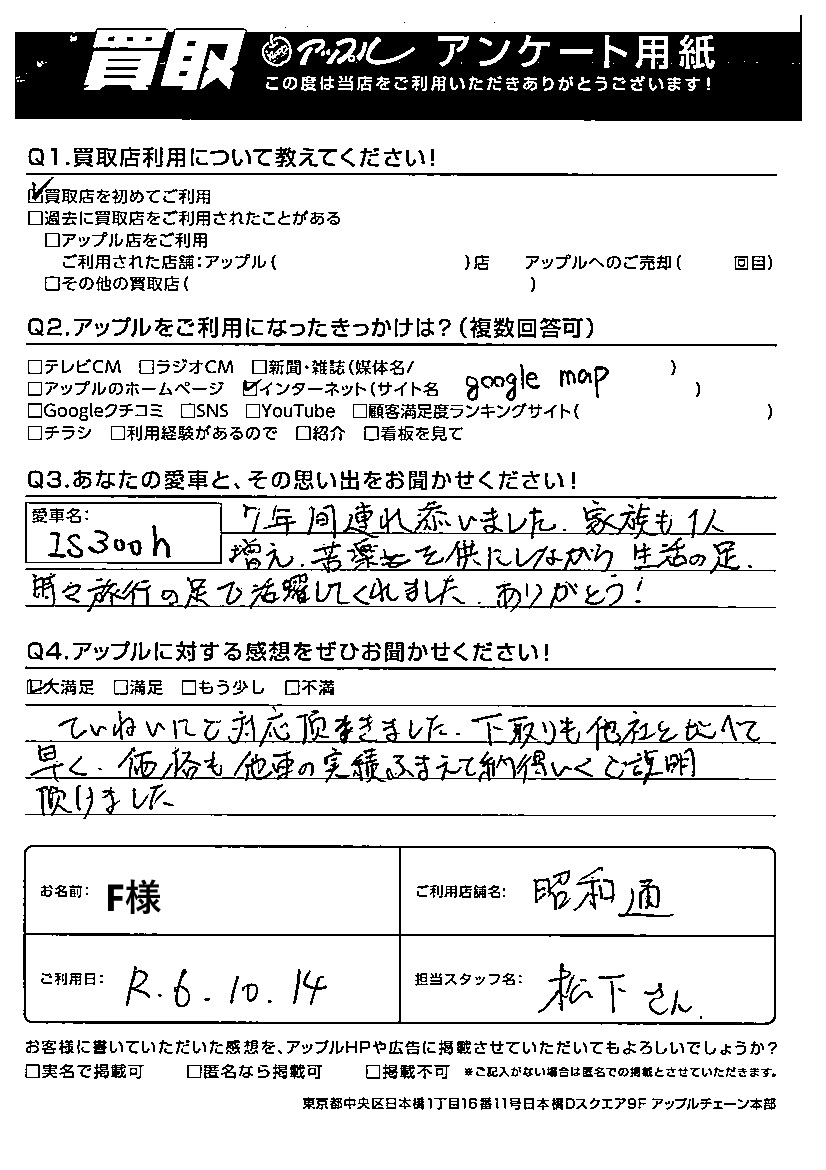 買取 アップル アンケート用紙
この度は当店をご利用いただきありがとうございます!
Q1.買取店利用について教えてください!
☑買取店を初めてご利用
□過去に買取店をご利用されたことがある
□アップル店をご利用
ご利用された店舗:アップル( )店 アップルへのご売却( 回目)
□その他の買取店( )
Q2.アップルをご利用になったきっかけは?(複数回答可)
□テレビCM □ラジオCM □新聞・雑誌(媒体名/ )
□アップルのホームページ ☑インターネット(サイト名 google map )
□Googleクチコミ □SNS □YouTube □顧客満足度ランキングサイト( )
□チラシ □利用経験があるので □紹介 □看板を見て
Q3.あなたの愛車と、その思い出をお聞かせください!
愛車名:
IS300h
7年間連れ添いました。家族も1人
増え、苦楽を供にしながら生活の足、
時々旅行の足で活躍してくれました。ありがとう!
Q4.アップルに対する感想をぜひお聞かせください!
☑大満足 □満足 □もう少し □不満
ていねいにご対応頂きました。下取りも他社と比べて
早く、価格も他車の実績ふまえて納得いくご説明
頂けました
お名前: F様 ご利用店舗名: 昭和通
ご利用日: R.6.10.14 担当スタッフ名: 松下さん
お客様に書いていただいた感想を、アップルHPや広告に掲載させていただいてもよろしいでしょうか?
□実名で掲載可 □匿名なら掲載可 □掲載不可 ※ご記入がない場合は匿名での掲載とさせていただきます。
東京都中央区日本橋1丁目16番11号日本橋Dスクエア9F アップルチェーン本部